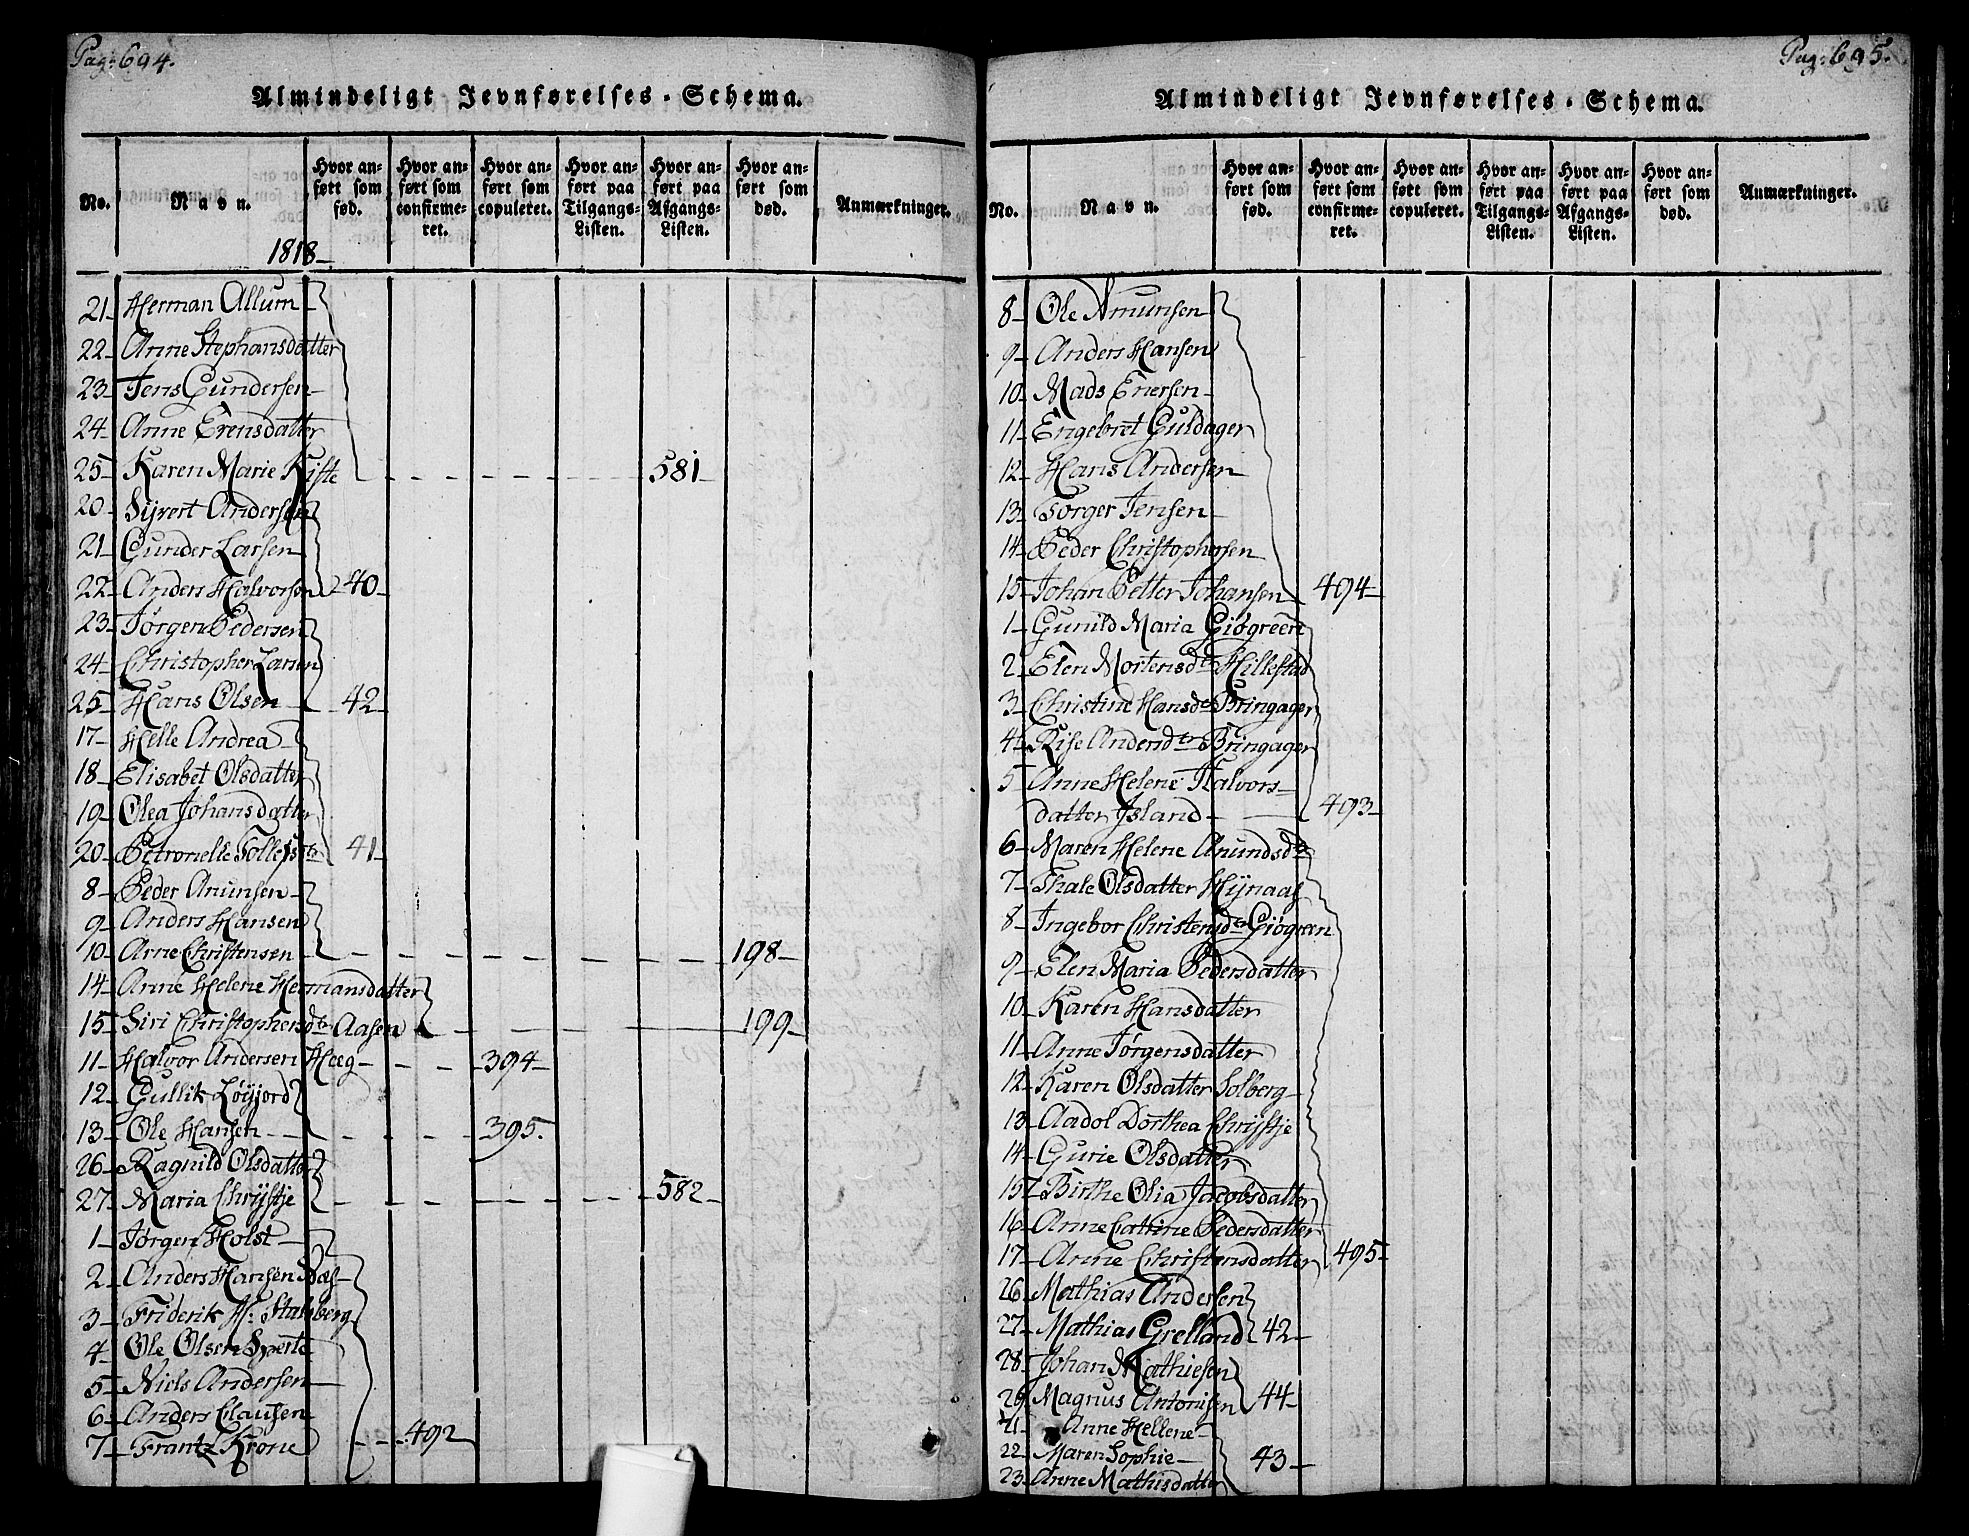 Pag: 694.
Almindeligt Jevnførelses-Schema.
No.
Navn.
Hvor anført som fød.
Hvor anført som confirmeret.
Hvor anført som copuleret.
Hvor anført paa Tilgangs-Listen.
Hvor anført paa Afgangs-Listen.
Hvor anført som død.
Anmærkninger.
1818
21 Herman Allum
22 Anne Stephansdatter
23 Jens Gundersen
24 Anne Erensdatter
25 Karen Marie Kiste 581
20 Sijvert Andersen
21 Gunder Larsen
22 Anders Halvorsen 40
23 Jørgen Pedersen
24 Christopher Larsen
25 Hans Olsen 42
17 Helle Andrea
18 Elisabet Olsdatter
19 Olea Johansdatter
20 Petronelle 41
8 Peder Anunsen
9 Anders Hansen
10 Arne Christensen 198
14 Anne Helene Hermansdatter
15 Siri Christophersdtr Aasen 199
11 Halvor Andersen Hæg 394
12 Gullik Løyjord
13 Ole Hansen 395.
26 Ragnild Olsdatter
27 Maria Chrijstje 582
1 Jørgen Holst
2 Anders Hansen
3 Friderik M: Stalsberg
4 Ole Olsen
5 Niels Andersen
6 Anders Clausen
7 Frantz Krone 492
Pag: 695.
Almindeligt Jevnførelses-Schema.
No.
Navn.
Hvor anført som fød.
Hvor anført som confirmeret.
Hvor anført som copuleret.
Hvor anført paa Tilgangs-Listen.
Hvor anført paa Afgangs-Listen.
Hvor anført som død.
Anmærkninger.
8 Ole Amunsen
9 Anders Hansen
10 Mads Enersen
11 Engebret Guldager
12 Hans Andersen
13 Torger Jensen
14 Peder Christophersen
15 Johan Petter Johansen 494
1 Gunild Maria Giøgreen
2 Elen Mortensdtr Hillestad
3 Christine Hansdtr Bringager
4 Kise Andersdtr Bringager
5 Anne Helene Halvors=
datter Island 493
6 Maren Helene Anundsdtr
7 Thale Olsdatter Hijnaas
8 Ingebor Christensdtr Giøgreen
9 Elen Maria Pedersdatter
10 Karen Hansdatter
11 Anne Jørgensdatter
12 Karen Olsdatter Solberg
13 Aadol Dorthea Chrijstje
14 Gurie Olsdatter
15 Birthe Olia Jacobsdatter
16 Anne Catrine Pedersdatter
17 Anne Christensdatter 495
26 Mathias Andersen
27 Mathias Grelland 42
28 Johan Mathiesen
29 Magnus Antonisen 44
21 Anne Hellene
22 Maren Sophie 43
23 Anne Mathisdatter